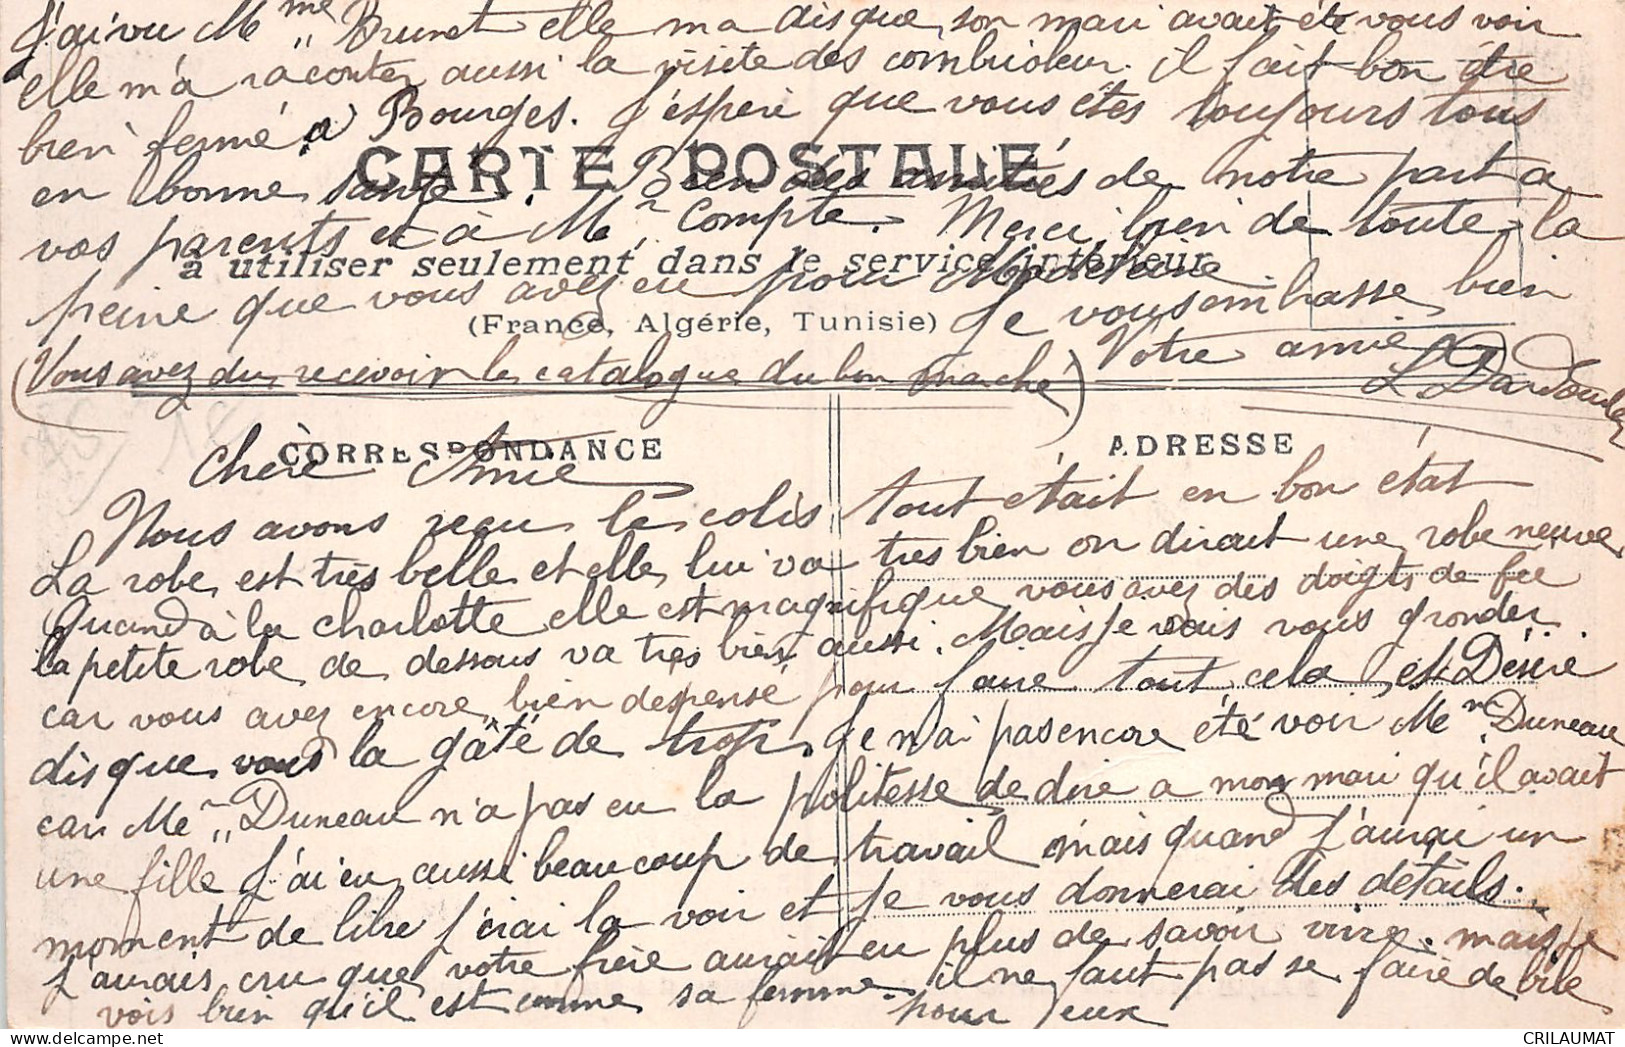 J'ai vu Mme Brunet elle ma dis que son mari avait été vous voir
elle m'a raconter aussi la visite des combrioleur. il fait bon être
bien fermé a Bourges. J'espère que vous êtes toujours tous
CARTE POSTALE
en bonne santé. Bien des amitiés de notre part a
vos parents et à Mr Compte. Merci bien de toute la
à utiliser seulement dans le service intérieur
peine que vous avez eu pour Madeleine Je vous embrasse bien
(France, Algérie, Tunisie)
Votre amie
(Vous avez du recevoir le catalogue du bon marché) L Dardoulez
CORRESPONDANCE
ADRESSE
Chère Amie
Nous avons reçu le colis tout était en bon état
La robe est très belle et elle lui va très bien on dirait une robe neuve
Quand à la charlotte elle est magnifique vous avez des doigts de fée
la petite robe de dessous va très bien aussi. Mais je vais vous gronder
car vous avez encore bien despensé pour faire tout cela et Désiré
dis que vous la gâté de trop. Je n'ai pas encore été voir Me Duneau
car Mr Duneau n'a pas eu la politesse de dire a mon mari qu'il avait
une fille J'ai eu aussi beaucoup de travail mais quand J'aurai un
moment de libre J'irai la voir et Je vous donnerai des détails.
J'aurais cru que votre frère aurait eu plus de savoir vivre. mais Je
vois bien qu'il est comme sa femme. il ne faut pas se faire de bile
pour eux
CRILAUMAT